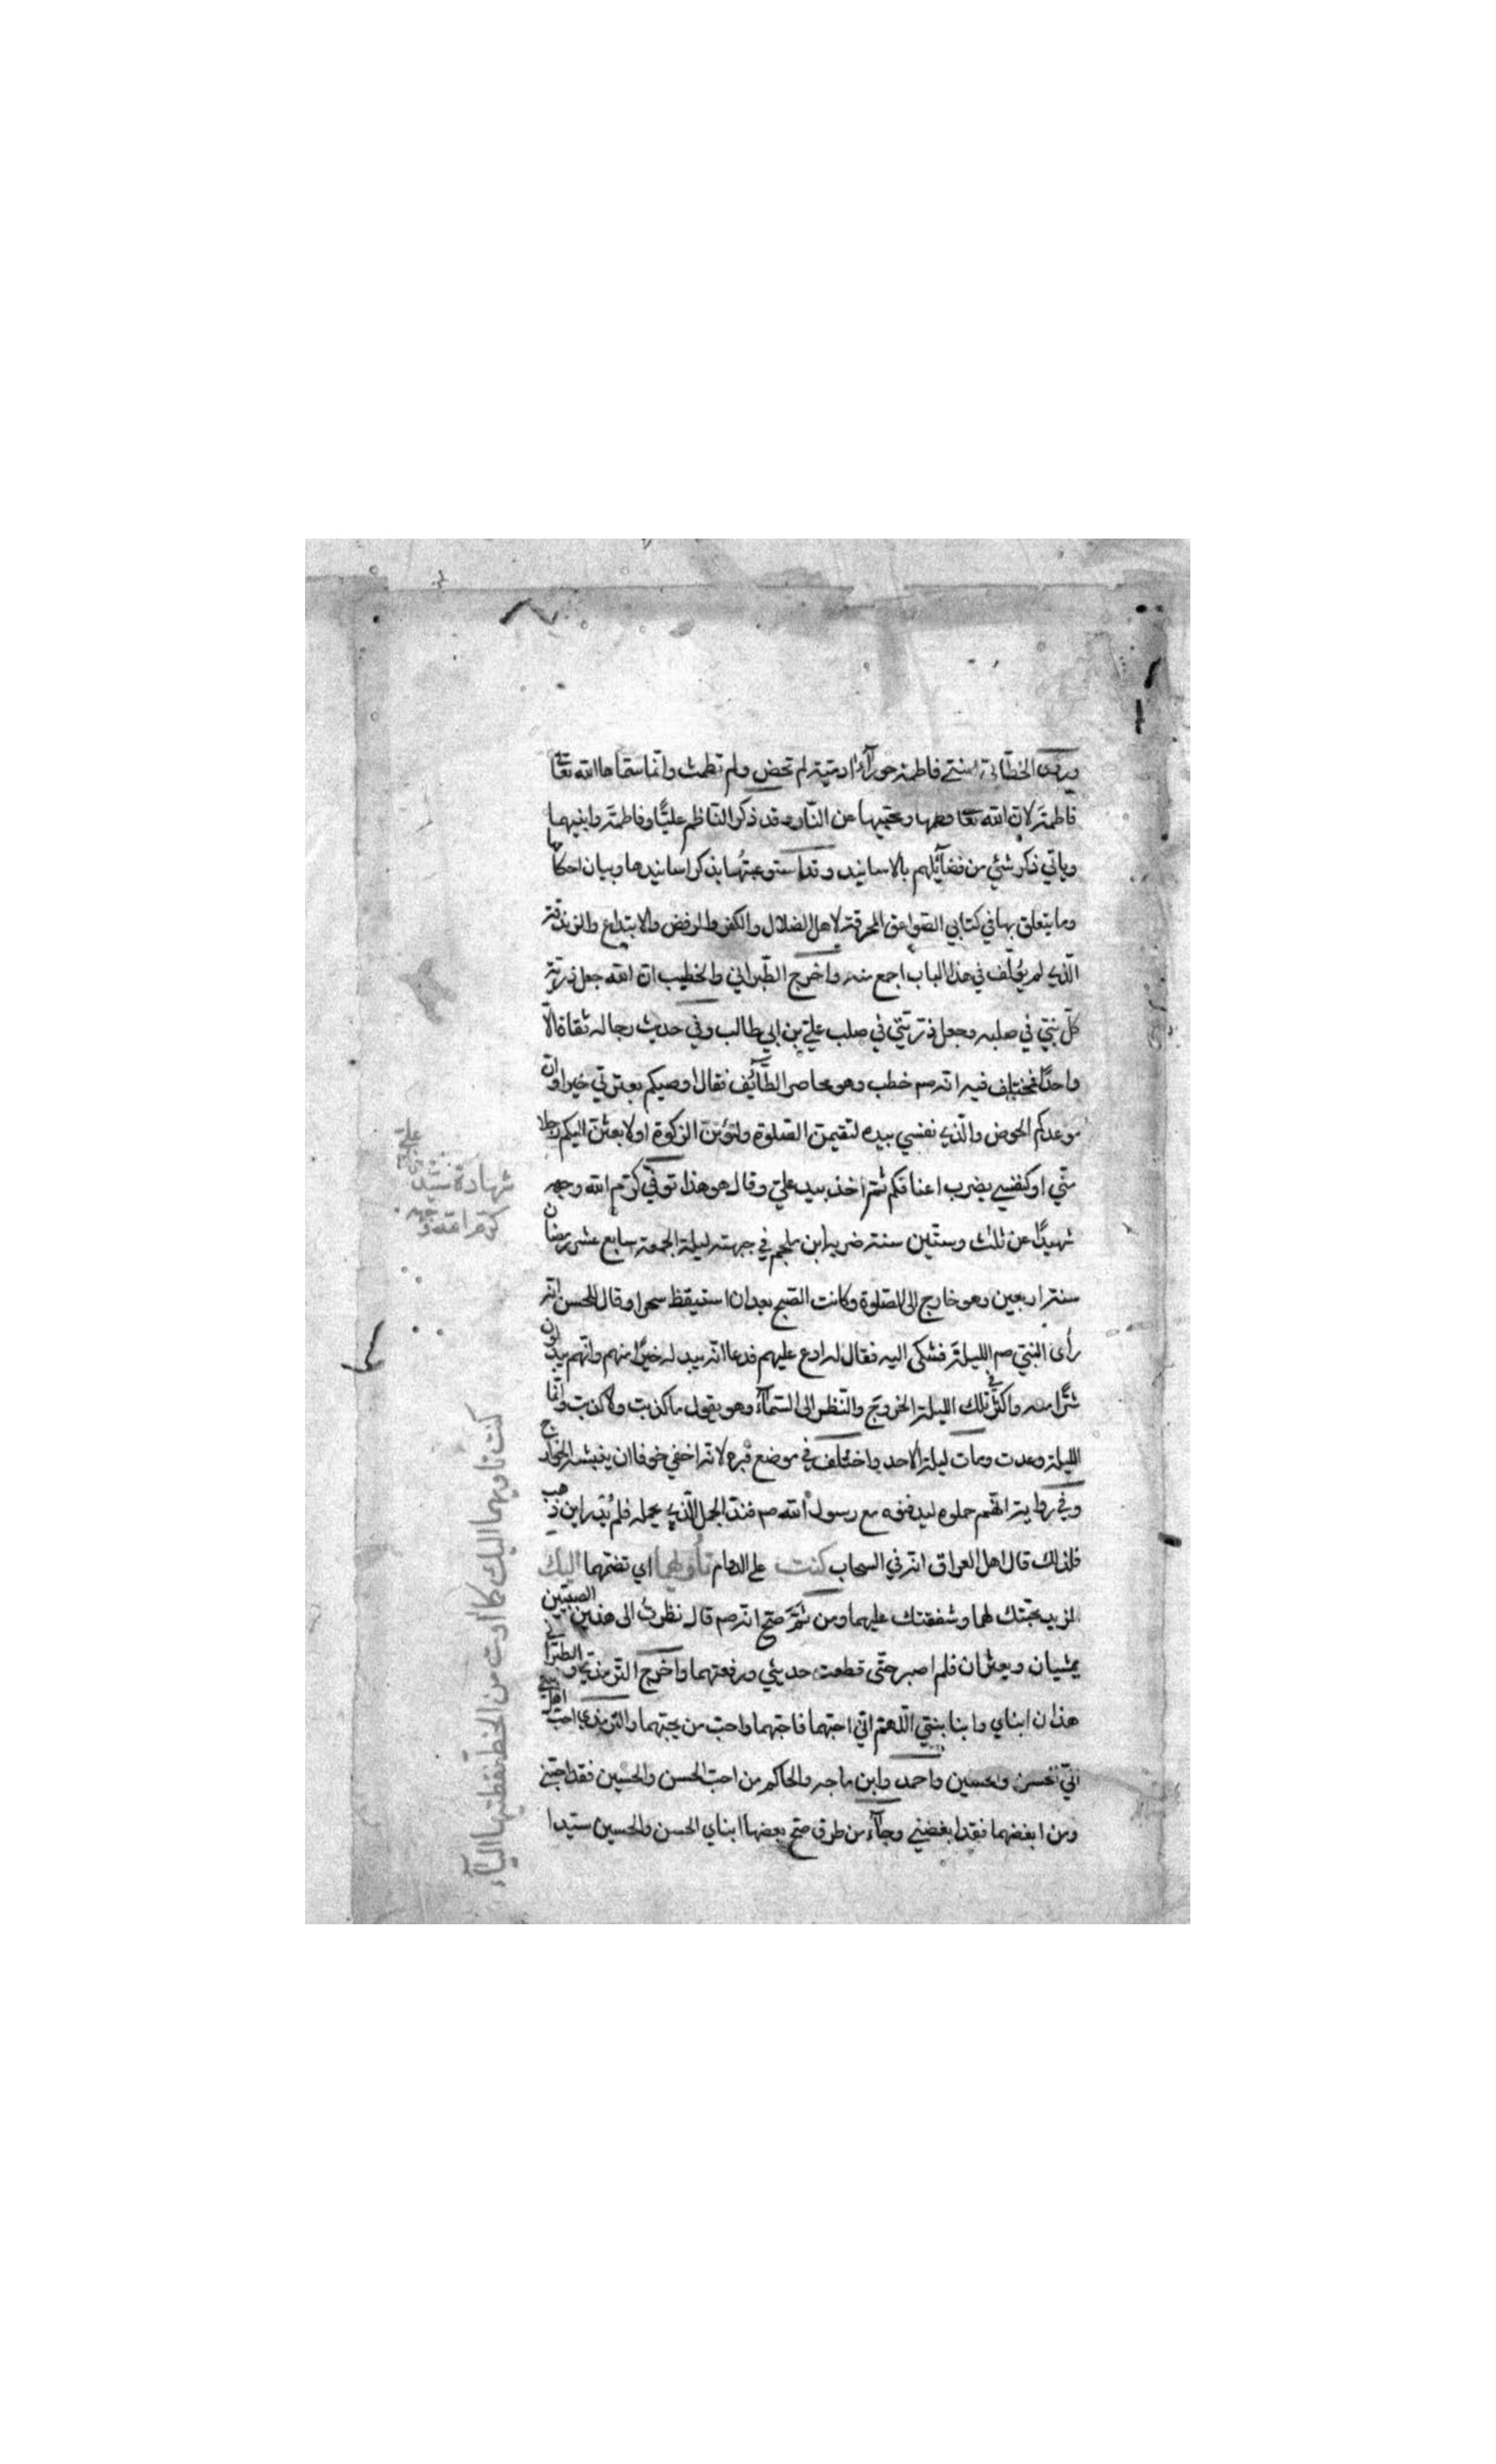 وروى الخطابي ابنتي فاطمة حورآء ادمية لم تحض ولم تطمث وانما سماها الله تعالى
فاطمة لان الله تعا فطمها ومحبيها عن النار وقد ذكر الناظم عليًّا وفاطمة وابنيهما
وياتي ذكر شئ من فضآئلهم بالاسانيد وقد استوعبتُها بذكر اسانيدها وبيان احكامها
وما يتعلق بها في كتابي الصواعق المحرقة لاهل الضلال والكفر والرفض والابتداع والزندقة
الّذي لم يؤلّف في هذا الباب اجمع منه واخرج الطّبراني والخطيب انّ الله جعل ذرّيّة
كلّ نبيّ في صلبه وجعل ذرّيّتي في صلب عليّ بن ابي طالب وفي حديث رجاله ثقاة الّا
واحدًا فمختلف فيه انّه صم خطب وهو محاصر الطّآئف فقال اوصيكم بعترتي خيرا وانّ
موعدكم الحوض والّذي نفسي بيده لتقيمنّ الصّلوة ولتؤتنّ الزكوة او لابعثنّ اليكم رجلا
منّي او كنفسي يضرب اعناقكم ثمّ اخذ بيد عليّ وقال هو هذا توفّي كرّم الله وجهه
شهيدًا عن ثلث وستّين سنة ضربه ابن ملجم في جبهته ليلة الجمعة سابع عشر رمضان
سنة اربعين وهو خارج الى الصّلوة وكانت الصّبح بعد ان استيقظ سحرا وقال للحسن انّه
رأى النبيّ صم الليلة فشكى اليه فقال له ادع عليهم فدعا انّه يبدله خيرًا منهم وانّهم يبدلون
شرًّا منه واكثر في تلك الليلة الخروج والنّظر الى السّمآء وهو يقول ما كذبت ولا كذبت وانّها
الليلة وعدت ومات ليلة الاحد واختلف في موضع قبره لانّه اخفي خوفا ان ينبشه الخوارج
وفي رواية انّهم حملوه ليدفنوه مع رسول الله صم فندّ الجمل الّذي يحمله فلم يُدر اين ذهب
فلذلك قال اهل العراق انّه في السحاب كنت على الدوام تأويهما اي تضمّهما اليك
لمزيد محبّتك لهما وشفقتك عليهما ومن ثَمَّ صحّ انّه صم قال نظرتُ الى هذين الصبيّين
يمشيان ويعثران فلم اصبر حتّى قطعت حديثي ورفعتهما واخرج التّرمذيّ والطبراني
هذان ابناي وابنا بنتي اللّهمّ انّي احبّهما فاحبّهما واحبّ من يحبّهما والتّرمذي احبّ اهل بيتي
اليّ الحسن والحسين واحمد وابن ماجه والحاكم من احبّ الحسن والحسين فقد احبّني
ومن ابغضهما فقد ابغضني وجآء من طرق صحّ بعضها ابناي الحسن والحسين سيّدا
شهادة سيّدنا عليّ
كرّم الله وجهه
كنت تأويهما اليك كما اوت من الخط نقطتيها اليآء